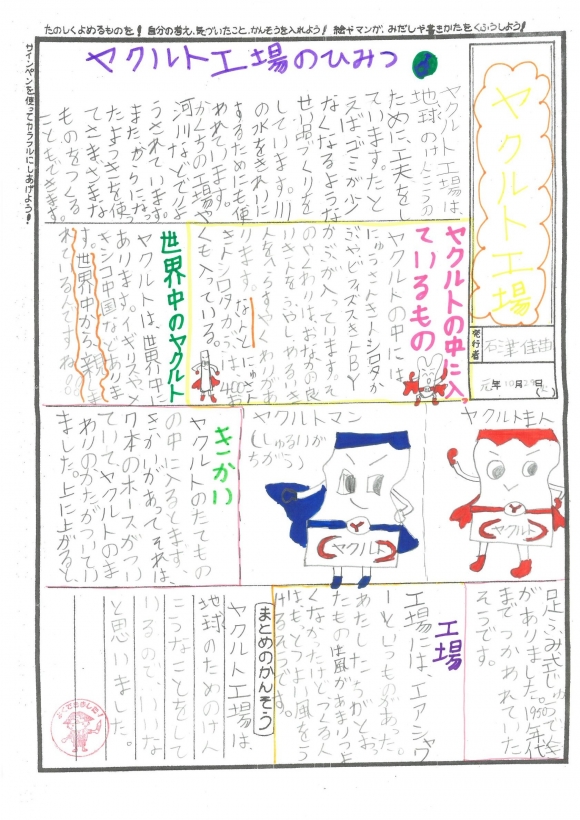 たのしくよめるものを！自分の考え、気づいたこと、かんそうを入れよう！絵やマンガ、みだしや書きかたをくふうしよう！
サインペンを使ってカラフルにしあげよう！
ヤクルト工場
発行者
元年10月29日
ヤクルト工場のひみつ
ヤクルト工場は、
地球のけんこうの
ために、工夫をし
ています。たと
えばゴミが少
なくなるような
せい品づくりを
しています。川
の水をきれいに
するためにも使
われています。
河川などでりよ
うされています。
たようきを使っ
てさまざまな
ものをつくる
こともできます。
ヤクルトの中に入っ
ているもの
ヤクルトの中には
にゅうさんきんシロタか
ぶが入っています。
も入っている。
世界中のヤクルト
ヤクルトは、世界中に
あります。イギリスやメ
キシコ中国などありま
す。世界中から、新
れているんですね。
ヤクルトマン
(しゅるいが
ちがう)
ヤクルト
ヤクルト
きかい
ヤクルトのたてもの
の中に入るとまず、
きかいがあってそれは、
7本のホースがつい
ていてヤクルトのま
わりのかたがついてい
ました。上に上がると、
足ふみ式じゅうでんき
がありました。1950年代
までつかわれていた
そうです。
工場
工場には、エアシャワ
ーというものがあった。
わたしたちがとお
たものは風があまりつよ
くなかったけどつくる人
はもっとつよい風をう
けるそうです。
まとめのかんそう
ヤクルト工場は、
地球のためのけん
こうなことをして
いるのでいいな
と思いました。